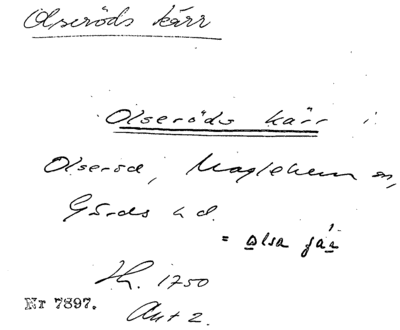 Olseröds kärr
Olseröds kärr i
Olseröd, Maglehem sn,
Gärds hd.
= olsa
Th. 1750
Nr 7897.
Akt 2.